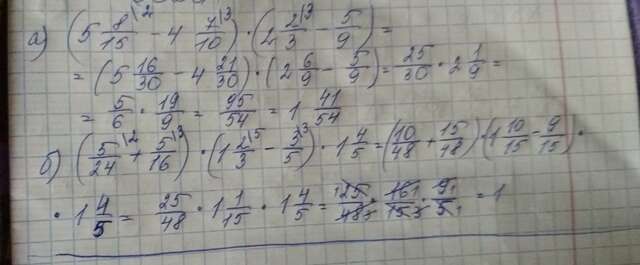 а) (5 8/15\2 − 4 7/10\3) · (2 2/3\3 − 5/9) =
= (5 16/30 − 4 21/30) · (2 6/9 − 5/9) = 25/30 · 2 1/9 =
= 5/6 · 19/9 = 95/54 = 1 41/54
б) (5/24\2 + 5/16\3) · (1 2/3\5 − 3/5\3) · 1 4/5 = (10/48 + 15/48) · (1 10/15 − 9/15) ·
· 1 4/5 = 25/48 · 1 1/15 · 1 4/5 = 25/48 · 16/15 · 9/5 = 1